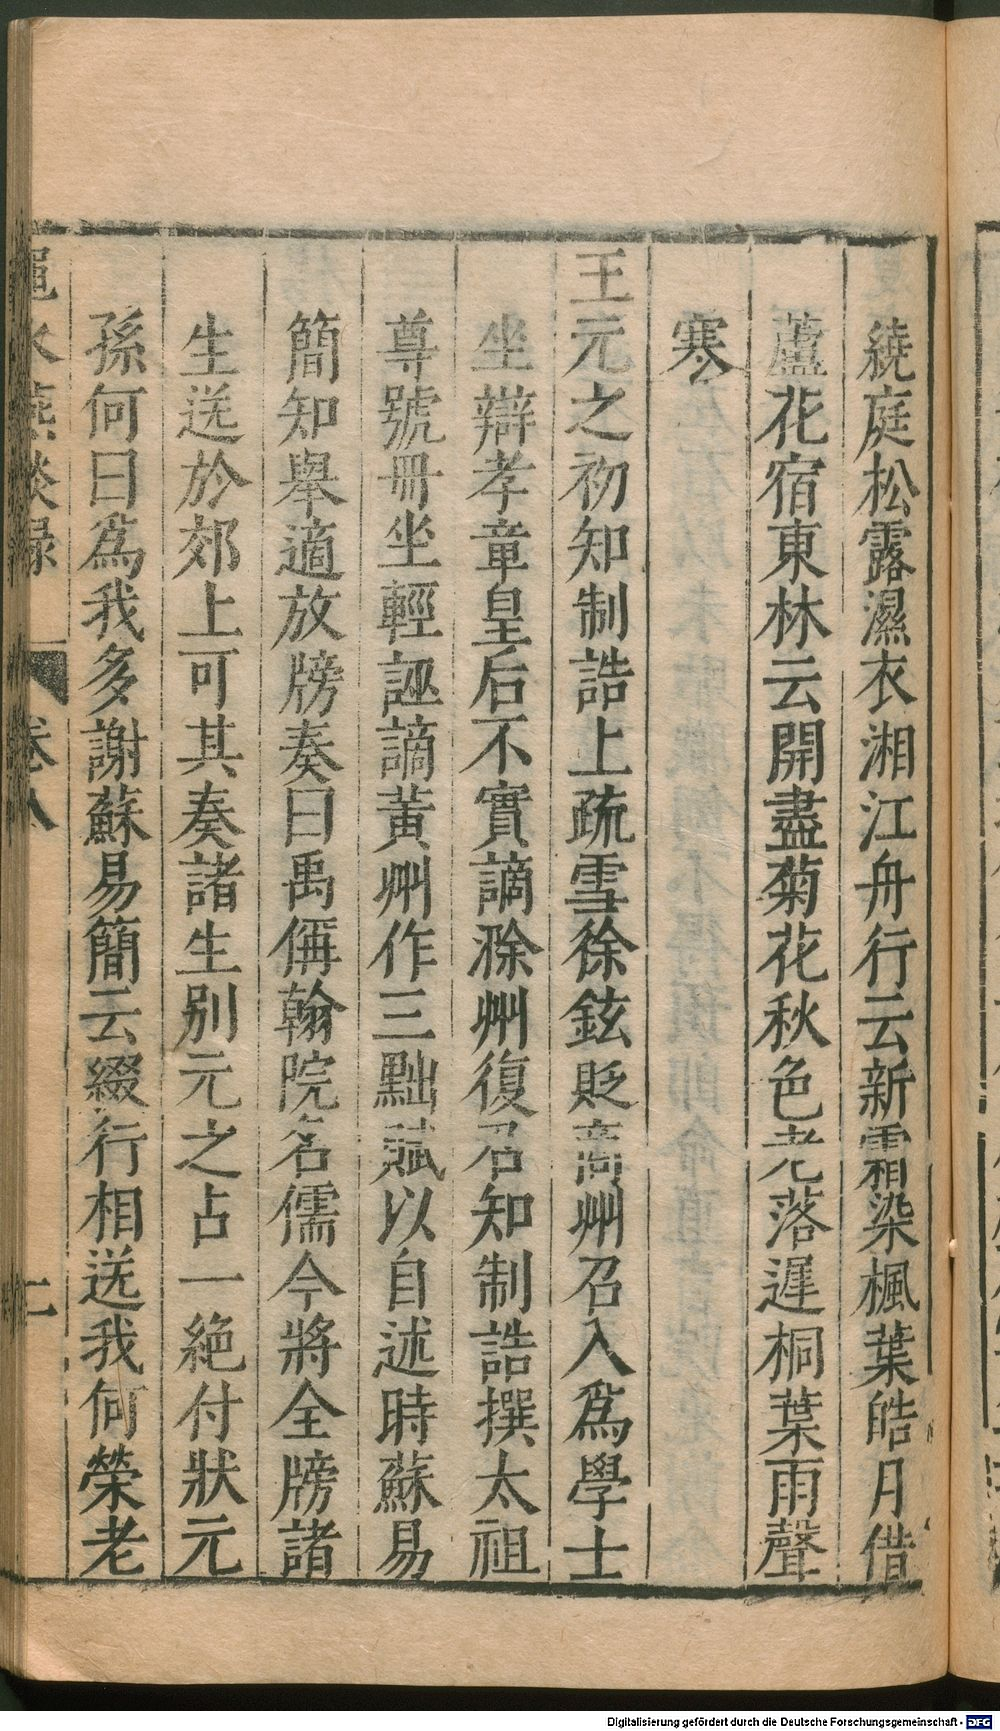 繞庭松露濕衣湘江舟行云新霜染楓葉皓月借
蘆花宿東林云開盡菊花秋色老落遲桐葉雨聲
寒
王元之初知制誥上疏雪徐鉉貶商州召入爲學士
坐辯孝章皇后不實謫滁州復召知制誥撰太祖
尊號冊坐輕誣謫黃州作三黜賦以自述時蘇易
簡知舉適放牓奏曰禹偁翰院名儒今將全牓諸
生送於郊上可其奏諸生别元之占一絶付狀元
孫何曰爲我多謝蘇易簡云綴行相送我何榮老
澠水燕談録 卷八 二
Digitalisierung gefördert durch die Deutsche Forschungsgemeinschaft - DFG